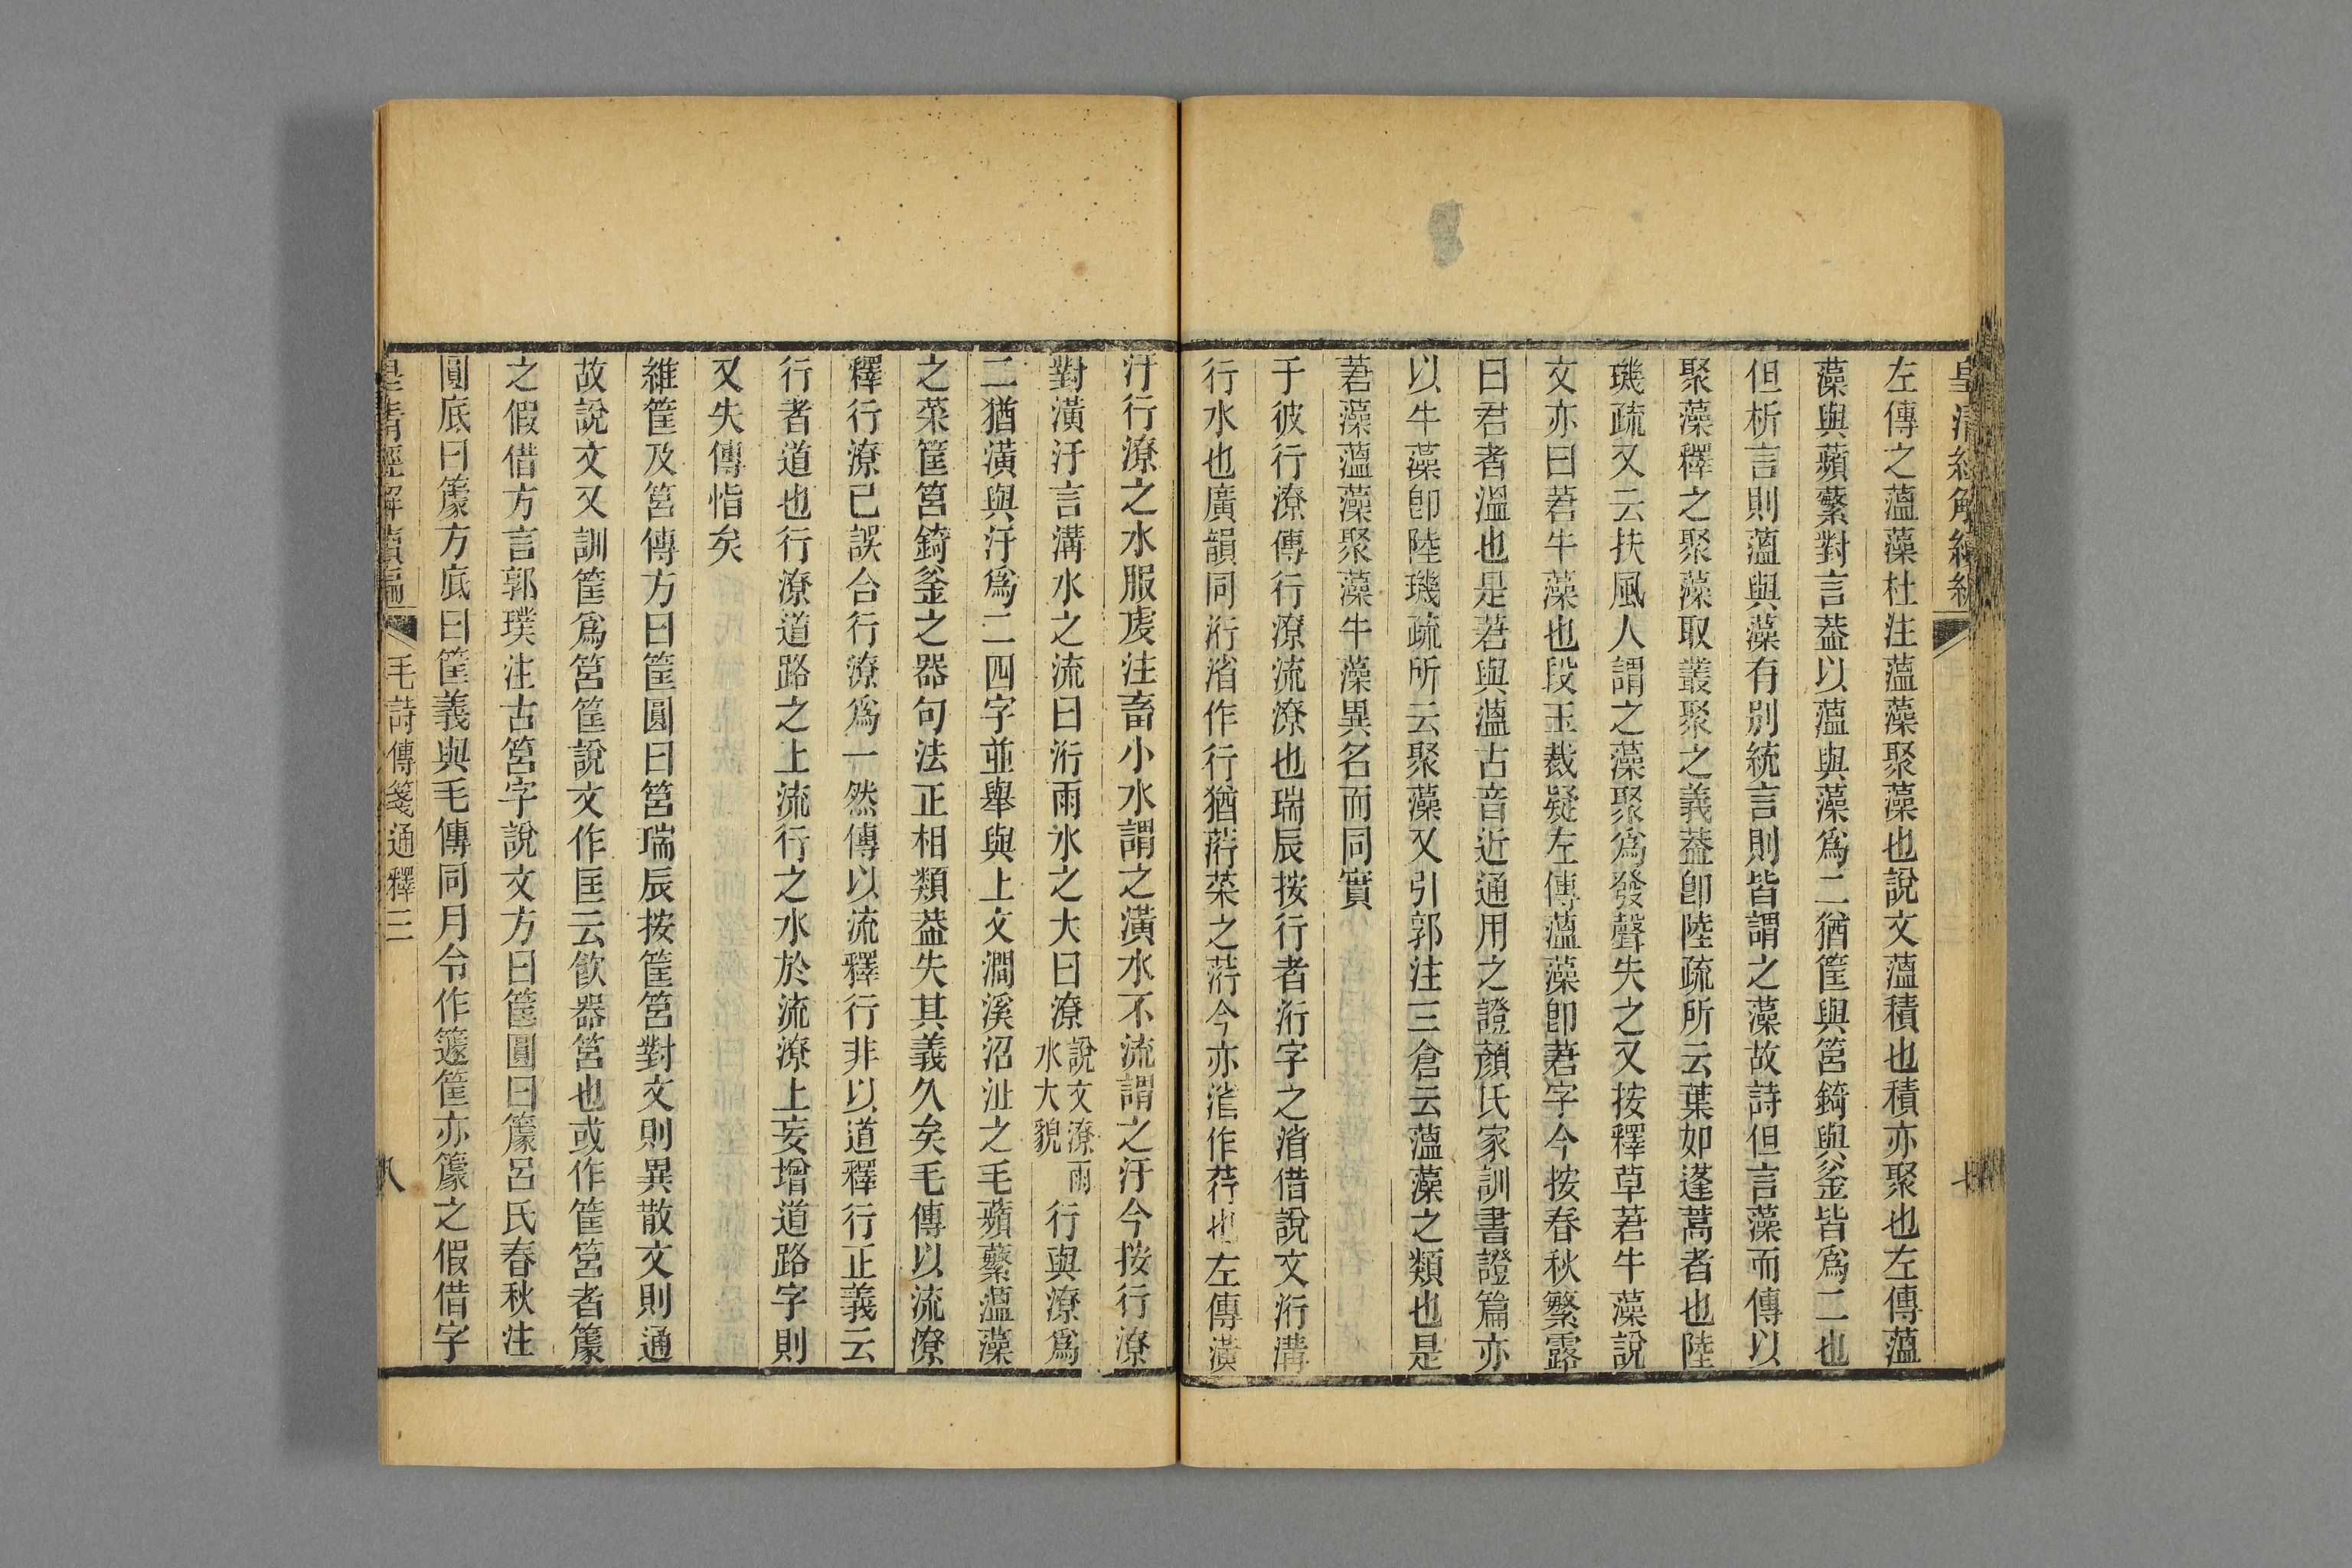 皇清經解續編
七
左傳之薀藻杜注薀藻聚藻也說文薀積也積亦聚也左傳薀
藻與蘋蘩對言葢以薀與藻爲二猶筐與筥錡與釜皆爲二也
但析言則薀與藻有別統言則皆謂之藻故詩但言藻而傳以
聚藻釋之聚藻取叢聚之義葢卽陸疏所云葉如蓬蒿者也陸
璣疏又云扶風人謂之藻聚爲發聲失之又按釋草莙牛藻說
文亦曰莙牛藻也段玉裁疑左傳薀藻卽莙字今按春秋繁露
曰君者溫也是莙與薀古音近通用之證顏氏家訓書證篇亦
以牛藻卽陸璣疏所云聚藻又引郭注三倉云薀藻之類也是
莙藻薀藻聚藻牛藻異名而同實
于彼行潦傳行潦流潦也瑞辰按行者洐字之渻借說文洐溝
行水也廣韻同洐渻作行猶荇菜之荇今亦渻作荇也左傳潢
汙行潦之水服虔注畜小水謂之潢水不流謂之汙今按行潦
對潢汙言溝水之流曰洐雨水之大曰潦說文潦雨水大貌行與潦爲
二猶潢與汙爲二四字並舉與上文澗溪沼沚之毛蘋蘩薀藻
之菜筐筥錡釜之器句法正相類葢失其義久矣毛傳以流潦
釋行潦已誤合行潦爲一然傳以流釋行非以道釋行正義云
行者道也行潦道路之上流行之水於流潦上妄增道路字則
又失傳恉矣
維筐及筥傳方曰筐圓曰筥瑞辰按筐筥對文則異散文則通
故說文又訓筐爲筥筐說文作匡云飮器筥也或作筐筥者簾
之假借方言郭璞注古筥字說文方曰筐圓曰簾呂氏春秋注
圓底曰簾方底曰筐義與毛傳同月令作籧筐亦簾之假借字
皇清經解續編
毛詩傳箋通釋三
八